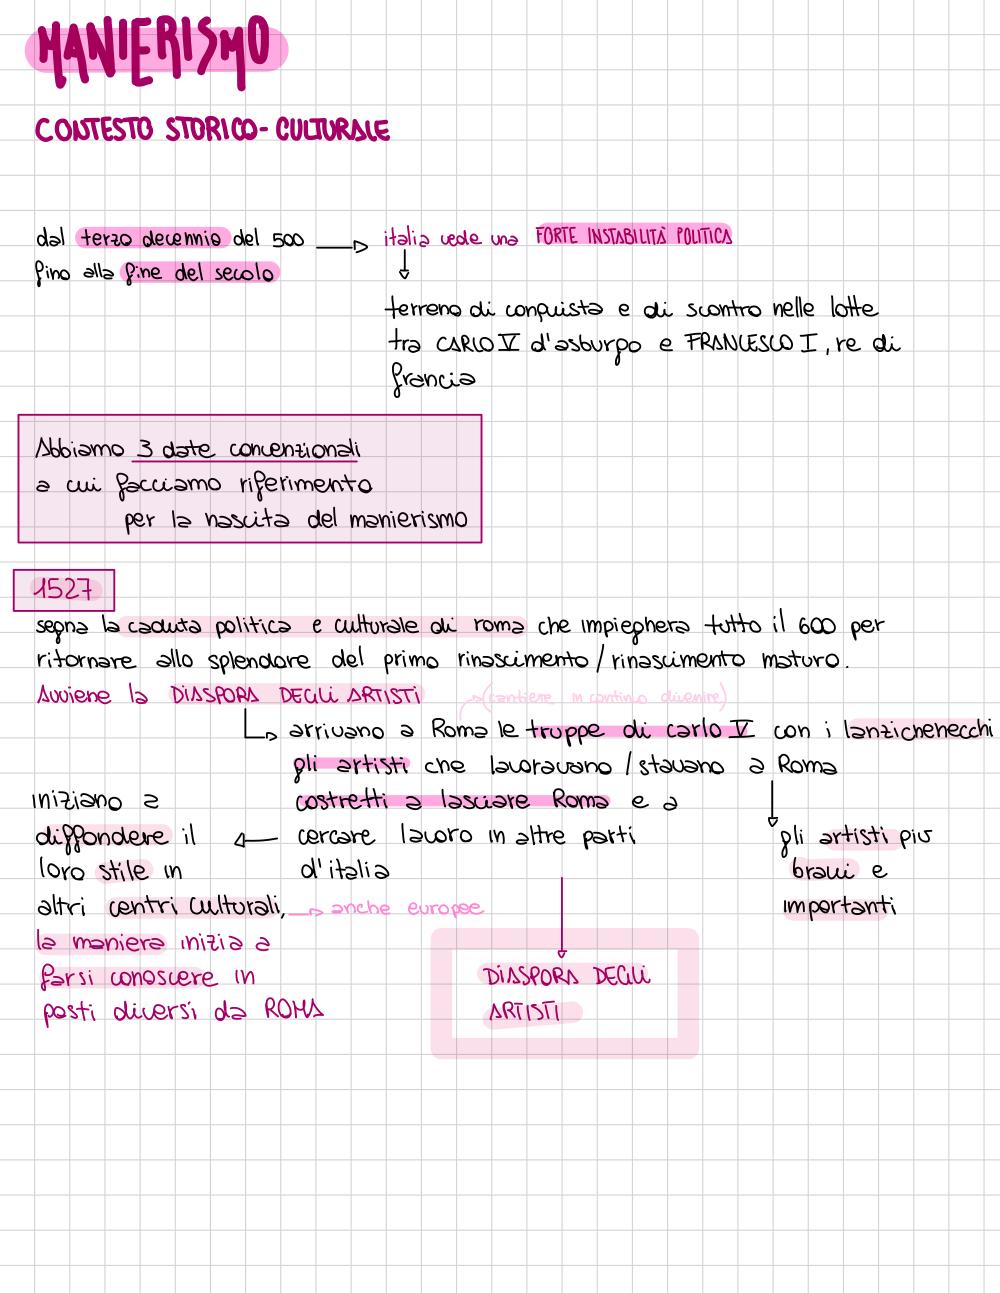 MANIERISMO
CONTESTO STORICO-CULTURALE
dal terzo decennio del 500 → italia vede una FORTE INSTABILITÀ POLITICA
fino alla fine del secolo
terreno di conquista e di scontro nelle lotte
tra CARLO V d'asburgo e FRANCESCO I, re di
francia
Abbiamo 3 date convenzionali
a cui facciamo riferimento
per la nascita del manierismo
1527
segna la caduta politica e culturale di roma che impiegherà tutto il 600 per
ritornare allo splendore del primo rinascimento/rinascimento maturo.
Avviene la DIASPORA DEGLI ARTISTI
→(cantiere in continuo divenire)
arrivano a Roma le truppe di carlo V con i lanzichenecchi
gli artisti che lavoravano/stavano a Roma
costretti a lasciare Roma e a
cercare lavoro in altre parti
d'italia
gli artisti più
bravi e
importanti
iniziano a
diffondere il
loro stile in
altri centri culturali, → anche europee
la maniera inizia a
farsi conoscere in
posti diversi da ROMA
DIASPORA DEGLI
ARTISTI